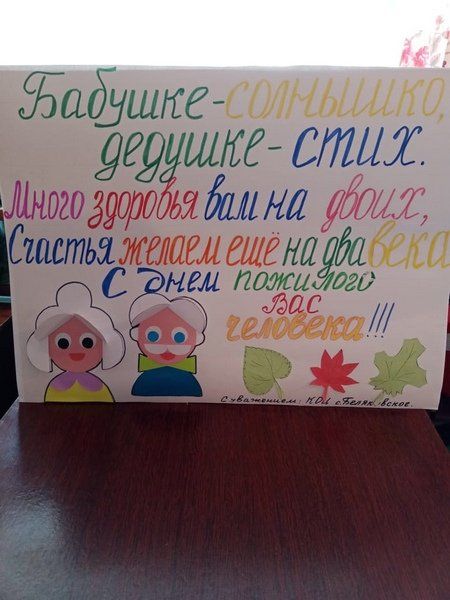 Бабушке-солнышко,
дедушке-стих.
Много здоровья вам на двоих,
Счастья желаем ещё на два века
С днем пожилого
Вас
человека!!!
С уважением: с.